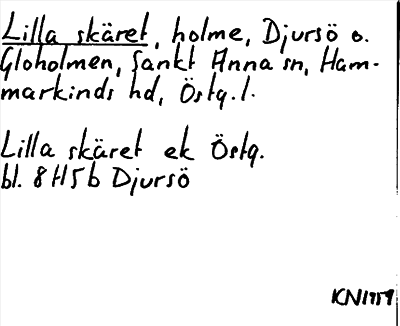 Lilla skäret, holme, Djursö o.
Gloholmen, Sankt Anna sn, Ham-
markinds hd, Östg.l.
Lilla skäret ek Östg.
bl. 8H5b Djursö